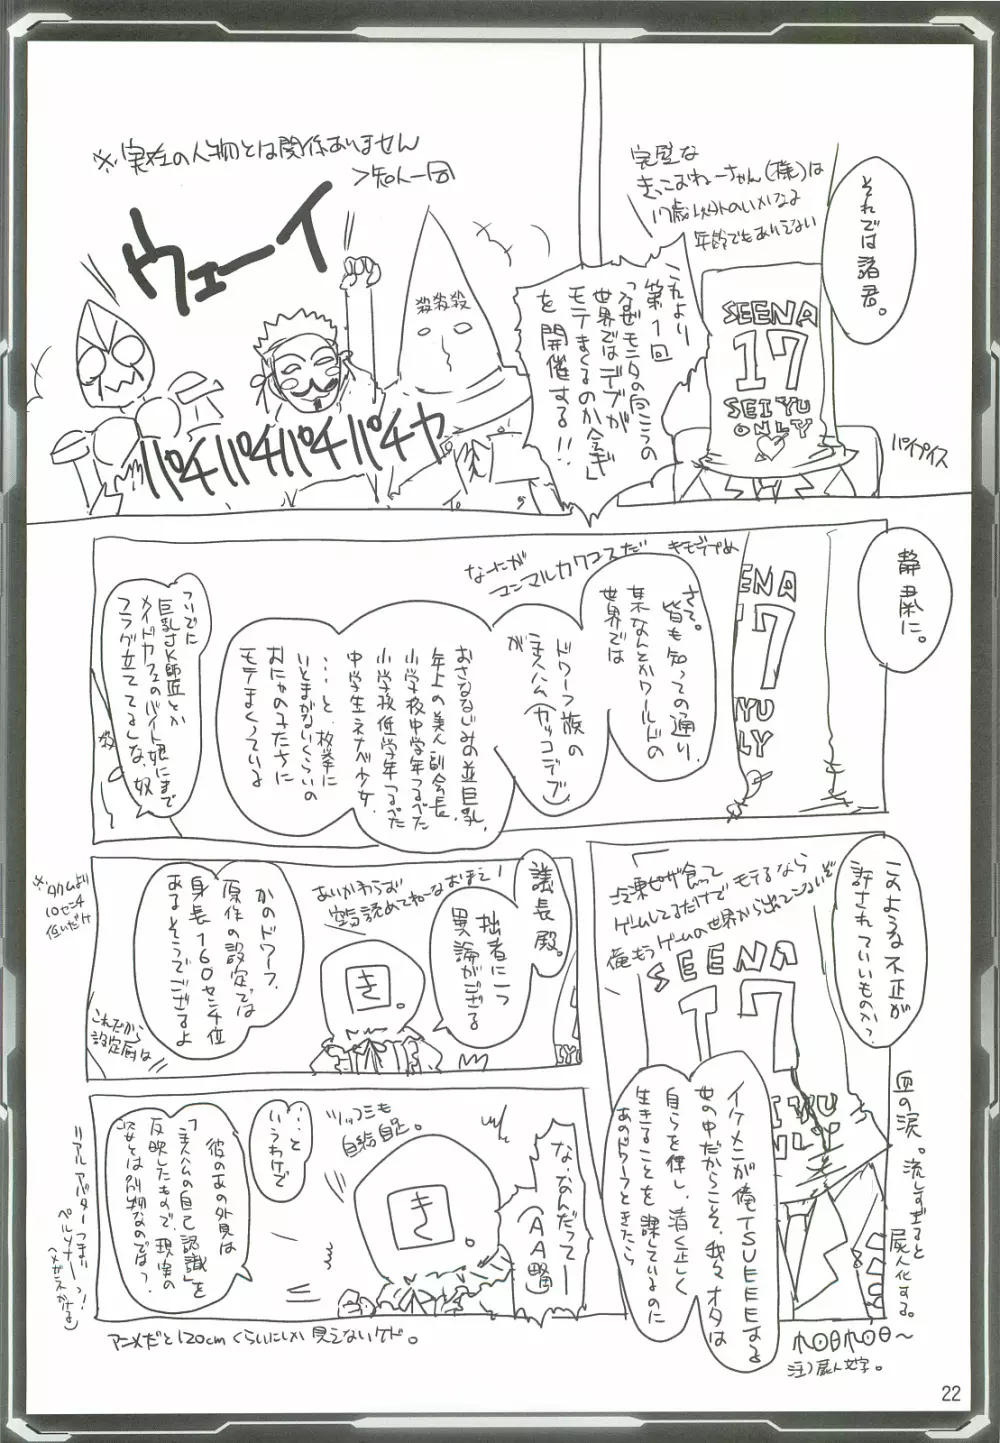 それでは諸君。
完璧な
きっこおねーちゃん(様)は
17歳以外のいかなる
年齢でもありえない
SEENA
17
SEIYU
ONLY
パイプイス
これより
第1回
「なぜモニタの向こうの
世界ではデブが
モテまくるのか会議」
を開催する!!
※実在の人物とは関係ありません
>知人一同
ウェーイ
殺殺殺
パチパチパチパチャ
静粛に。
ENA
17
IYU
LY
キモデブめ
さて。
皆も知っての通り、
某なんとかワールドの
世界では
なーたが
マンマルカクコスだ
ドワーフ族の
主人公(カッコデブ)
が
おさななじみの並巨乳、
年上の美人副会長、
小学校中学年つるぺた
小学校低学年つるぺた
中学生ネナベ少女、
…と、枚挙に
いとまがないくらいの
おにゃの子たちに
モテまくっている
ついでに
巨乳ドS師匠とか
メイドカフェのバイト娘にまで
フラグ立ててるしな、奴
このような不正が
許されていいものか?
「冷凍ピザ食って
ゲームしてるだけでモテるなら
俺もうゲームの世界から出てこないぞ
SEENA
17
IYU
NL
イケメンが俺TSUEEEEする
世の中だからこそ、我々オタは
自らを律し、清く正しく
生きることを課しているのに
あのドワーフときたら
血の涙。流しすぎると
屍人化する。
注)屍人文字。
議長殿。
拙者に一つ
異論がござる
あいかわらず
空気読めてねーなおまえ!
き。
かのドワーフ、
原作の設定では
身長160センチ位
あるそうでござるよ
※タクムより
10センチ
低いだけ
これだから
設定厨は
な、なんだってー
(AA略)
ツッコミも
自給自足。
き。
…と
いうわけで
彼のあの外見は
「主人公の自己認識」を
反映したもので、現実の
姿とは別物なのでは?
リアルアバターつまり
ペルソナーっ!
(メガネかける)
アニメだと120cmくらいにしか見えないケド。
22